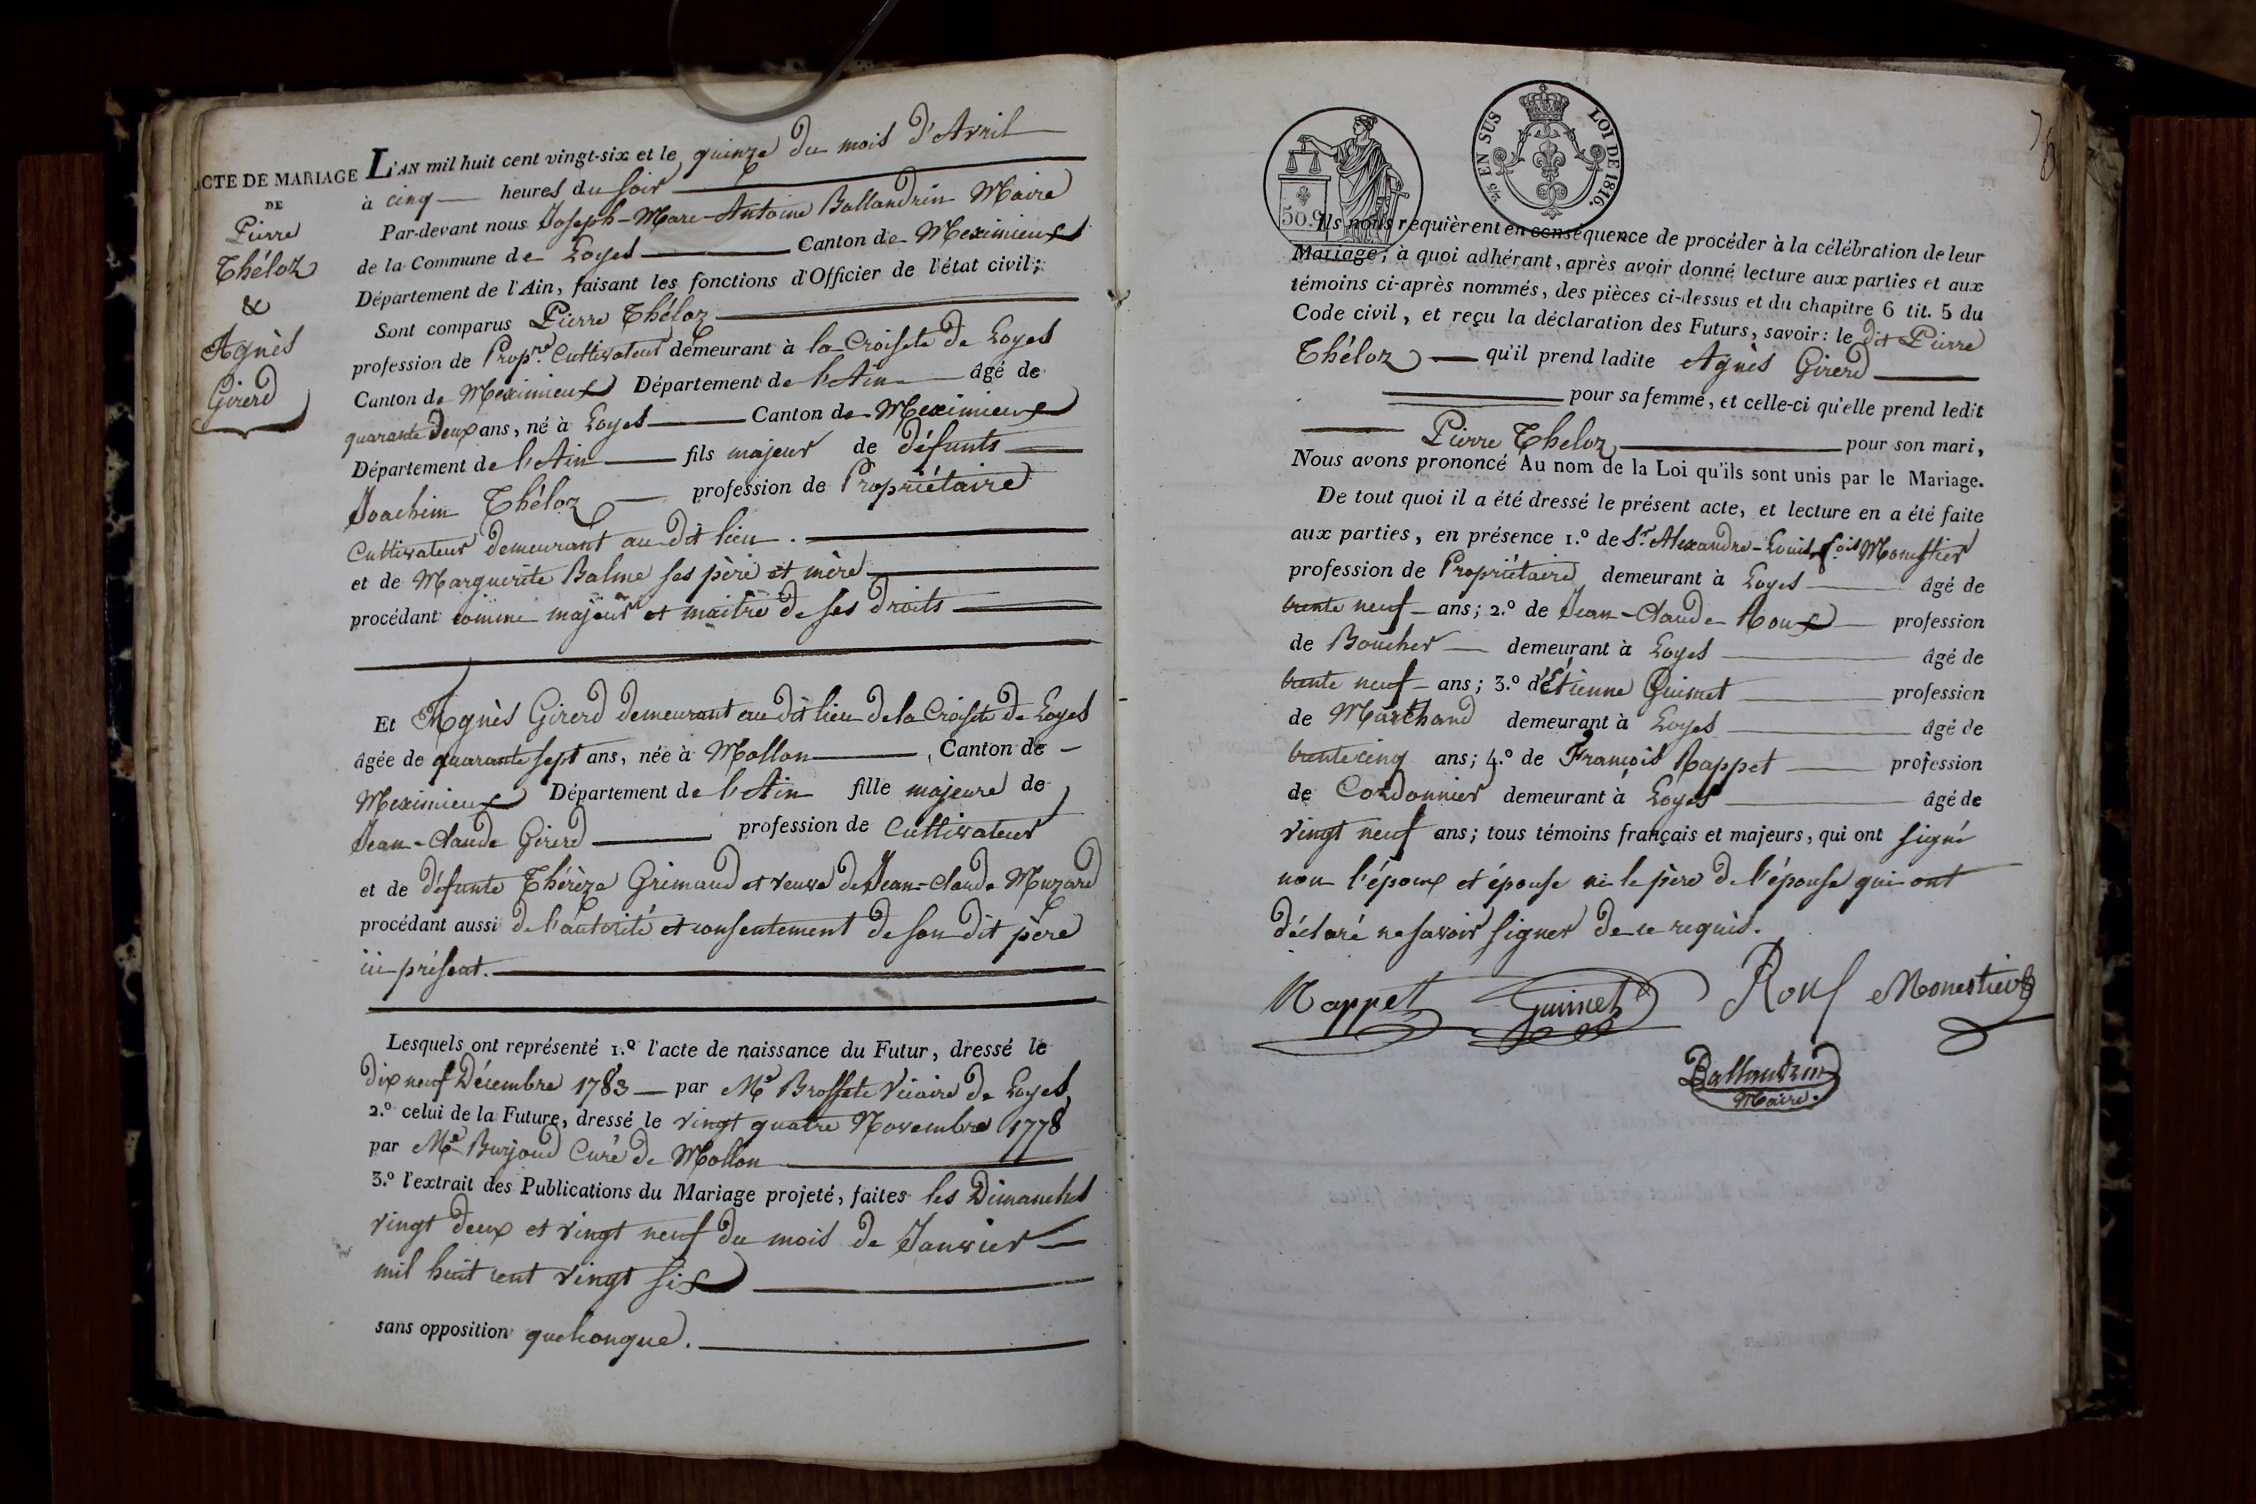 ACTE DE MARIAGE
DE
Pierre
Théloz
&
Agnès
Girerd
L'AN mil huit cent vingt-six et le quinze du mois d'Avril
à cinq heures du soir
Par-devant nous Joseph-Marc-Antoine Ballandrin Maire
de la Commune de Loyes Canton de Meximieux
Département de l'Ain, faisant les fonctions d'Officier de l'état civil;
Sont comparus Pierre Théloz
profession de Propre. Cultivateur demeurant à la Croisete de Loyes
Canton de Meximieux Département de l'Ain âgé de
quarante deux ans, né à Loyes Canton de Meximieux
Département de l'Ain fils majeur de défunts
Joachim Théloz profession de Propriétaire
Cultivateur demeurant au dit lieu.
et de Marguerite Balme ses père et mère
procédant comme majeur et maitre de ses droits
Et Agnès Girerd demeurant au dit lieu de la Croisete de Loyes
âgée de quarante sept ans, née à Mollon, Canton de
Meximieux Département de l'Ain fille majeure de
Jean-Claude Girerd profession de Cultivateur
et de défunte Thérèze Grimaud et veuve de Jean-Claude Muzard
procédant aussi de l'autorité et consentement de son dit père
ici présent.
Lesquels ont représenté 1.º l'acte de naissance du Futur, dressé le
dix neuf Décembre 1783 par Me Brossete Vicaire de Loyes,
2.º celui de la Future, dressé le vingt quatre Novembre 1778
par Me Burjoud Curé de Mollon
3.º l'extrait des Publications du Mariage projeté, faites les Dimanches
vingt deux et vingt neuf du mois de Janvier
mil huit cent vingt six
sans opposition quelconque.
50.c
2/5 EN SUS LOI DE 1816.
Ils nous requièrent en conséquence de procéder à la célébration de leur
Mariage; à quoi adhérant, après avoir donné lecture aux parties et aux
témoins ci-après nommés, des pièces ci-dessus et du chapitre 6 tit. 5 du
Code civil, et reçu la déclaration des Futurs, savoir: le dit Pierre
Théloz qu'il prend ladite Agnès Girerd
pour sa femme, et celle-ci qu'elle prend ledit
Pierre Theloz pour son mari,
Nous avons prononcé Au nom de la Loi qu'ils sont unis par le Mariage.
De tout quoi il a été dressé le présent acte, et lecture en a été faite
aux parties, en présence 1.º de Sr. Alexandre-Louis fois Monestier
profession de Propriétaire demeurant à Loyes âgé de
trente neuf ans; 2.º de Jean-Claude Roux profession
de Boucher demeurant à Loyes âgé de
trente neuf ans; 3.º d'Étienne Guimet profession
de Marchand demeurant à Loyes âgé de
trente cinq ans; 4.º de François Rappet profession
de Cordonnier demeurant à Loyes âgé de
vingt neuf ans; tous témoins français et majeurs, qui ont signé
non l'époux et épouse ni le père de l'épouse qui ont
déclaré ne savoir signer de ce requis.
Rappet Guimet Roux Monestier
Ballandrin
Maire.